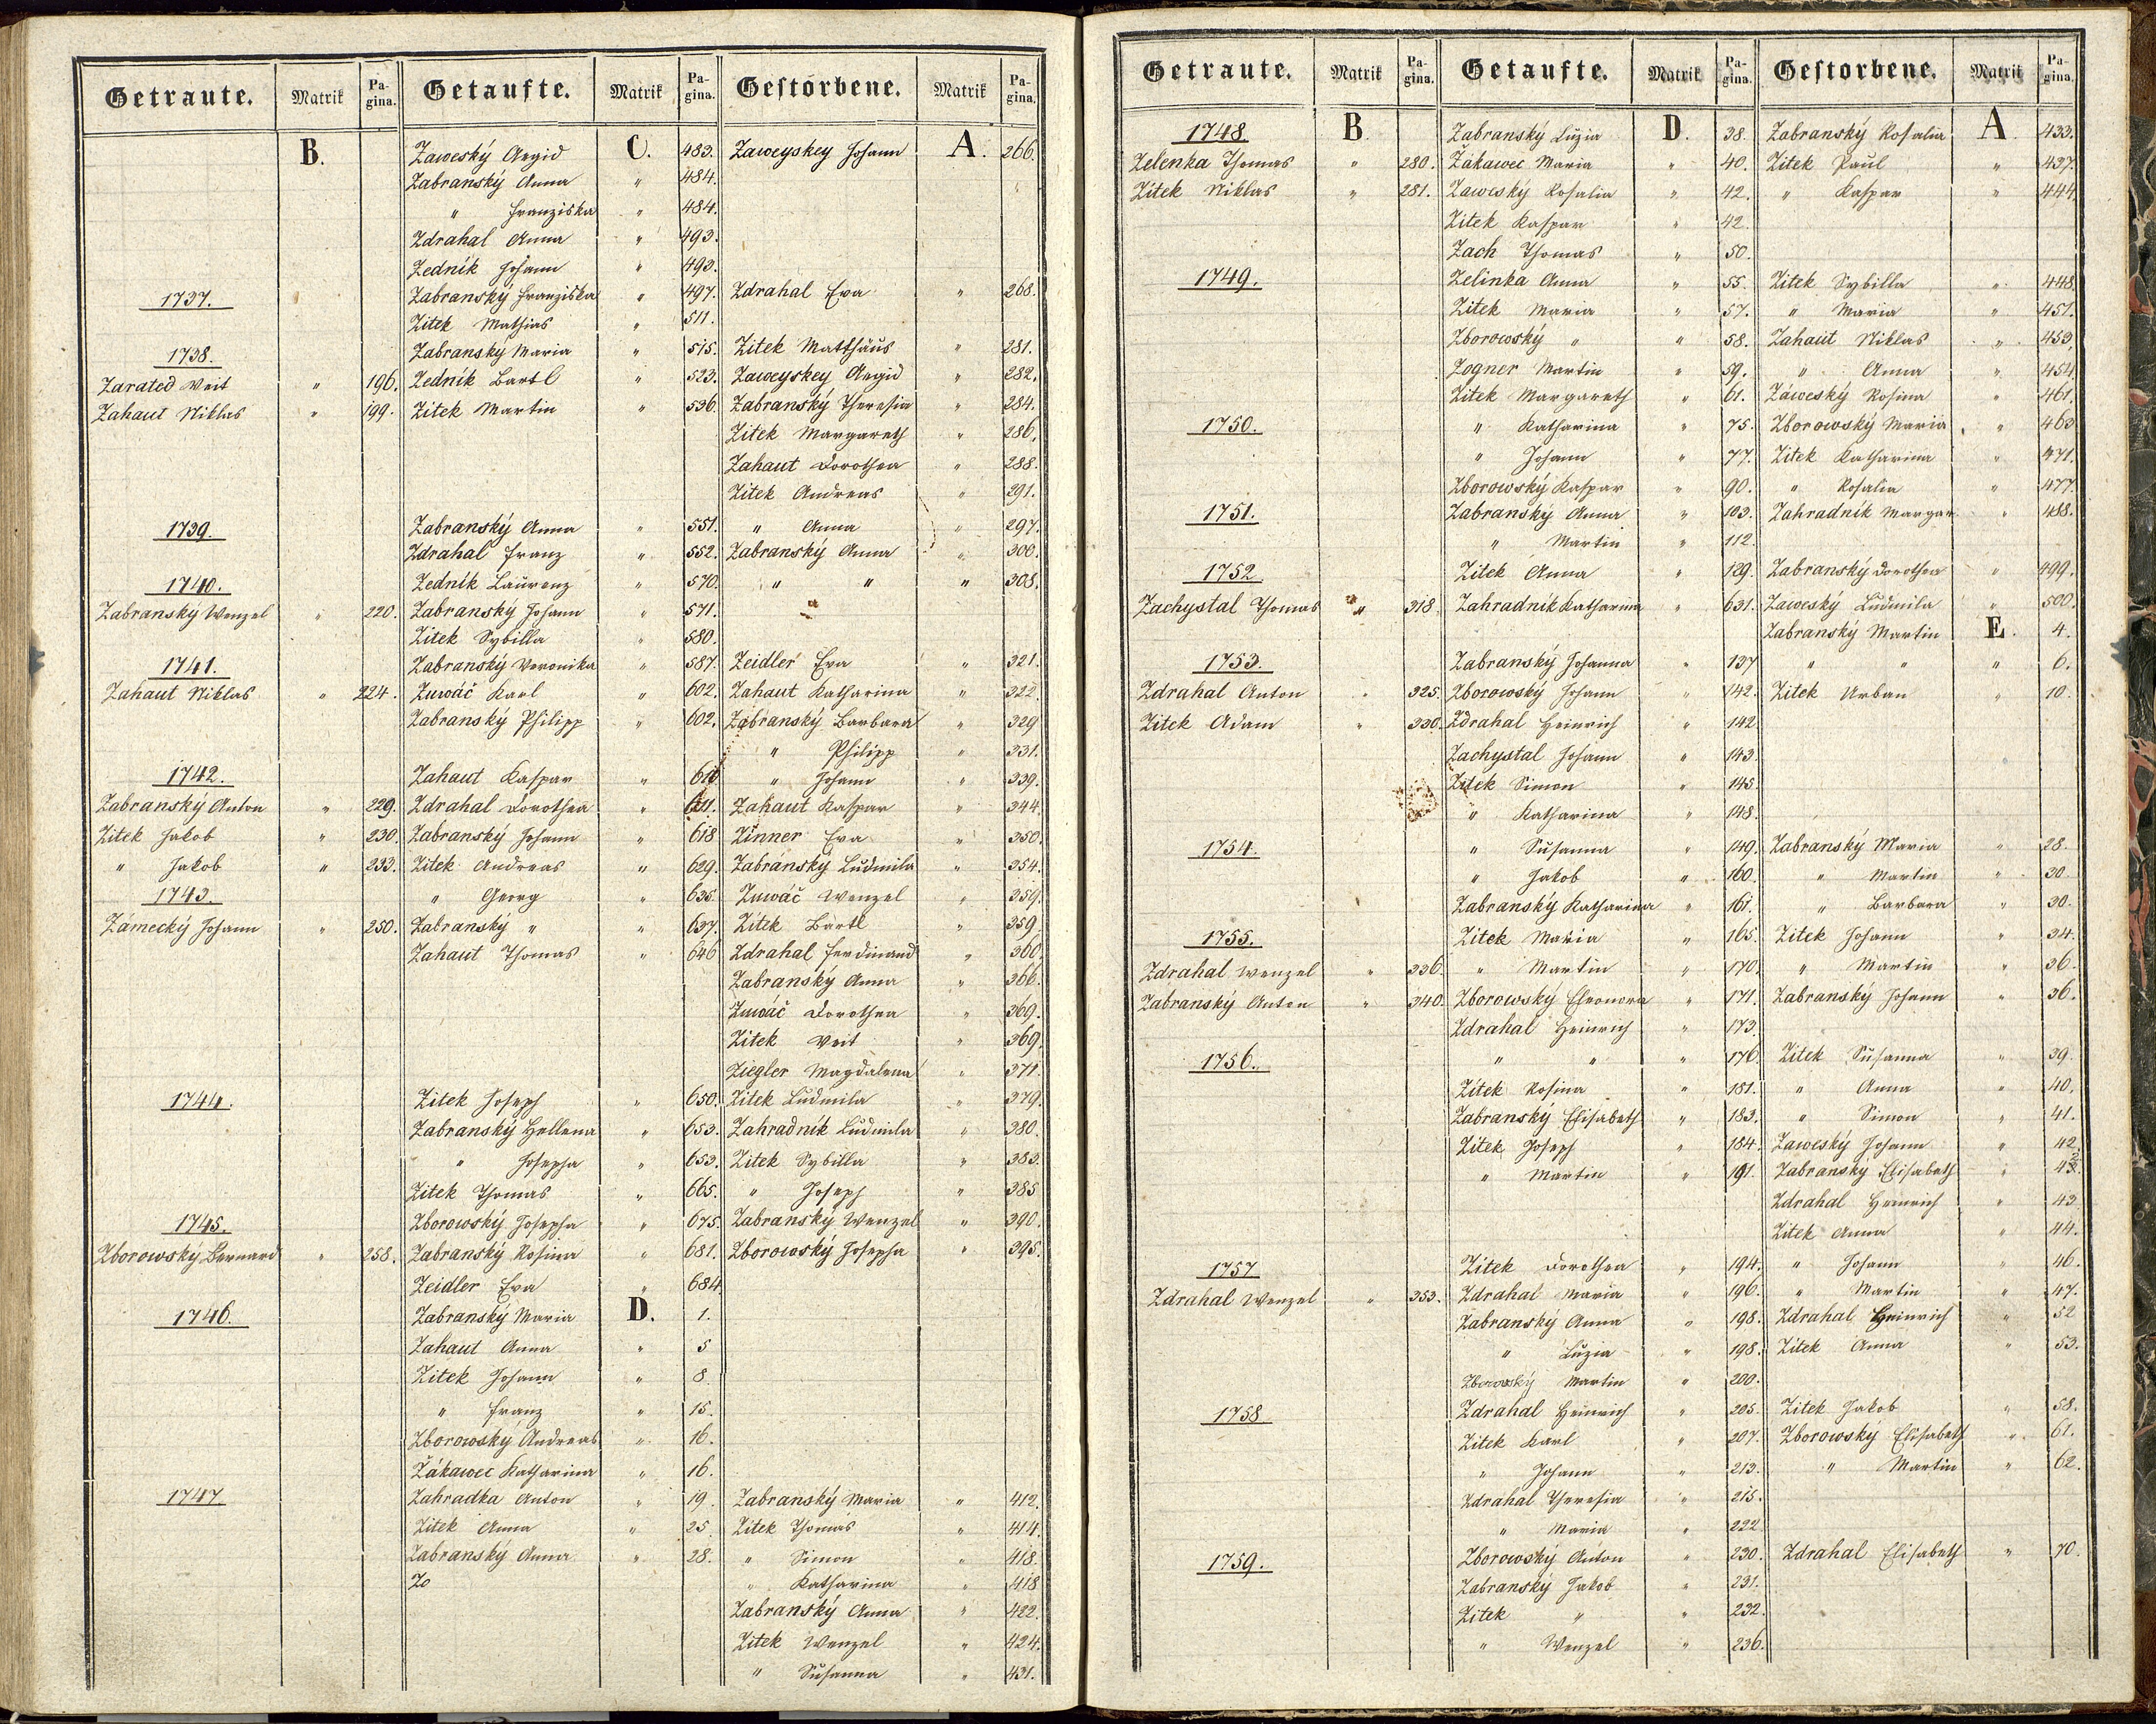 Getraute. Matrik Pagina. Getaufte. Matrik Pagina. Gestorbene. Matrik Pagina.
B. Zaweský Aegid C. 483. Zaweyskey Johann A. 266.
Zabranský Anna " 484.
" Franziska " 484.
Zdrahal Anna " 493.
Zednik Johann " 493.
1737. Zabranský Franziska " 497. Zdrahal Eva " 268.
Zitek Mathias " 511.
1738. Zabranský Maria " 515. Zitek Matthäus " 281.
Zarated Veit " 196. Zednik Bartl " 523. Zaweyskey Aegid " 282.
Zahaut Niklas " 199. Zitek Martin " 536. Zabranský Theresia " 284.
Zitek Margareth " 286.
Zahaut Dorothea " 288.
Zitek Andreas " 291.
1739. Zabranský Anna " 551. " Anna " 297.
Zdrahal Franz " 552. Zabranský Anna " 300.
1740. Zednik Laurenz " 570. " " " 308.
Zabranský Wenzel " 220. Zabranský Johann " 571.
Zitek Sybilla " 580.
1741. Zabranský Veronika " 587. Zeidler Eva " 321.
Zahaut Niklas " 224. Zuwáč Karl " 602. Zahaut Katharina " 322.
Zabranský Philipp " 602. Zabranský Barbara " 329
" Philipp " 331.
1742. Zahaut Kaspar " " Johann " 339.
Zabranský Anton " 229. Zdrahal Dorothea " 611. Zahaut Kaspar " 344.
Zitek Jakob " 230. Zabranský Johann " 618 Zinner Eva " 350.
" Jakob " 233. Zitek Andreas " 629. Zabranský Ludmila " 354.
1743. " Georg " 635. Zuwáč Wenzel " 359.
Zámecký Johann " 250. Zabranský " " 637. Zitek Bartl " 359.
Zahaut Thomas " 646 Zdrahal Ferdinand " 360.
Zabranský Anna " 366.
Zuwáč Dorothea " 369.
Zitek Veit " 369.
Ziegler Magdalena " 371.
1744. Zitek Joseph " 650. Zitek Ludmila " 379.
Zabranský Hellena " 653. Zahradnik Ludmila " 380.
" Josepha " 653. Zitek Sybilla " 383.
Zitek Thomas " 665. " Joseph " 385
1745. Zborowský Josepha " 675. Zabranský Wenzel " 390.
Zborowský Bernard " 258. Zabranský Rosina " 681. Zborowský Josepha " 395.
Zeidler Eva " 684
1746. Zabranský Maria D. 1.
Zahaut Anna " 5
Zitek Johann " 8.
" Franz " 15.
Zborowský Andreas " 16.
Žákawec Katharina " 16.
1747 Zahradka Anton " 19. Zabranský Maria " 412.
Zitek Anna " 25. Zitek Thomas " 414.
Zabranský Anna " 28. " Simon " 418.
Zo " Katharina " 418
Zabranský Anna " 422.
Zitek Wenzel " 424.
" Susanna " 431.
Getraute. Matrik Pagina. Getaufte. Matrik Pagina. Gestorbene. Matrik Pagina.
1748 B. Zabranský Luzia D. 38. Zabranský Rosalia A. 433.
Zelenka Thomas " 280. Žákawec Maria " 40. Zitek Paul " 437.
Zitek Niklas " 281. Zaweský Rosalia " 42. " Kaspar " 444.
Zitek Kaspar " 42.
Zach Thomas " 50.
1749. Zelinka Anna " 55. Zitek Sybilla " 448.
Zitek Maria " 57. " Maria " 451.
Zborowský " " 58. Zahaut Niklas " 453.
Zogner Martin " 59. " Anna " 454
Zitek Margareth " 61. Záweský Rosina " 461.
1750. " Katharina " 75. Zborowský Maria " 463
" Johann " 77. Zitek Katharina " 471.
Zborowský Kaspar " 90. " Rosalia " 477.
1751. Zabranský Anna " 103. Zahradnik Margar " 488.
" Martin " 112.
1752 Zitek Anna " 129. Zabranský Dorothea " 499.
Zachystal Thomas " 318. Zahradnik Katharina " 631. Zaweský Ludmila " 500.
Zabranský Martin E. 4.
1753. Zabranský Johanna " 137 " " " 6.
Zdrahal Anton " 325. Zborowský Johann " 142. Zitek Urban " 10.
Zitek Adam " 330. Zdrahal Heinrich " 142
Zachystal Johann " 143.
Zitek Simon " 145
" Katharina " 148.
1754. " Susanna " 149. Zabranský Maria " 28.
" Jakob " 160. " Martin " 30.
Zabranský Katharina " 161. " Barbara " 30.
1755. Zitek Maria " 165. Zitek Johann " 34.
Zdrahal Wenzel " 336. " Martin " 170. " Martin " 36.
Zabranský Anton " 340. Zborowský Eleonora " 171. Zabranský Johann " 36.
Zdrahal Heinrich " 173.
1756. " " " 176. Zitek Susanna " 39.
Zitek Rosina " 181. " Anna " 40.
Zabranský Elisabeth " 183. " Simon " 41.
Zitek Joseph " 184. Zaweský Johann " 42.
" Martin " 191. Zabranský Elisabeth "
Zdrahal Heinrich " 43.
Zitek Anna " 44.
1757 Zitek Dorothea " 194. " Johann " 46.
Zdrahal Wenzel " 353. Zdrahal Maria " 196. " Martin " 47.
Zabranský Anna " 198. Zdrahal Heinrich " 52
" Luzia " 198. Zitek Anna " 53.
Zborowský Martin " 200.
1758 Zdrahal Heinrich " 205. Zitek Jakob " 58.
Zitek Karl " 207. Zborowský Elisabeth " 61.
" Johann " 213. " Martin " 62.
Zdrahal Theresia " 215.
" Maria " 222.
1759. Zborowský Anton " 230. Zdrahal Elisabeth " 70.
Zabranský Jakob " 231.
Zitek " " 232.
" Wenzel " 236.